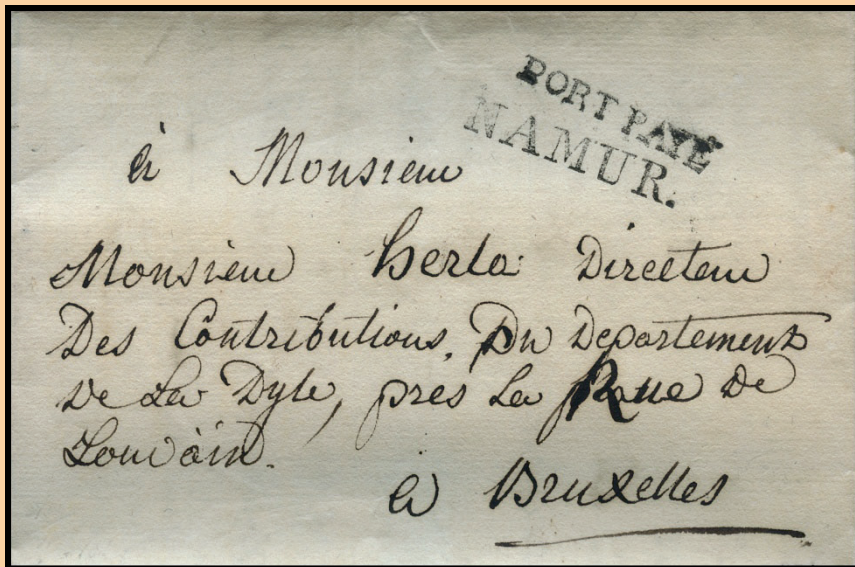 PORT PAYÉ
NAMUR.
à Monsieur
Monsieur herla Directeur
Des Contributions, Du Departement
De La Dyle, près La Rue De
Louvain.
à Bruxelles